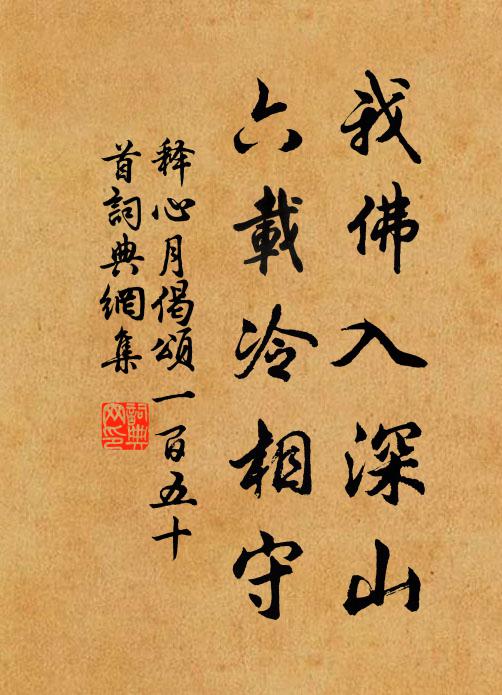 我佛入深山
六載冷相守
释心月偈頌一百五十
首詞典網集
詞典
网印